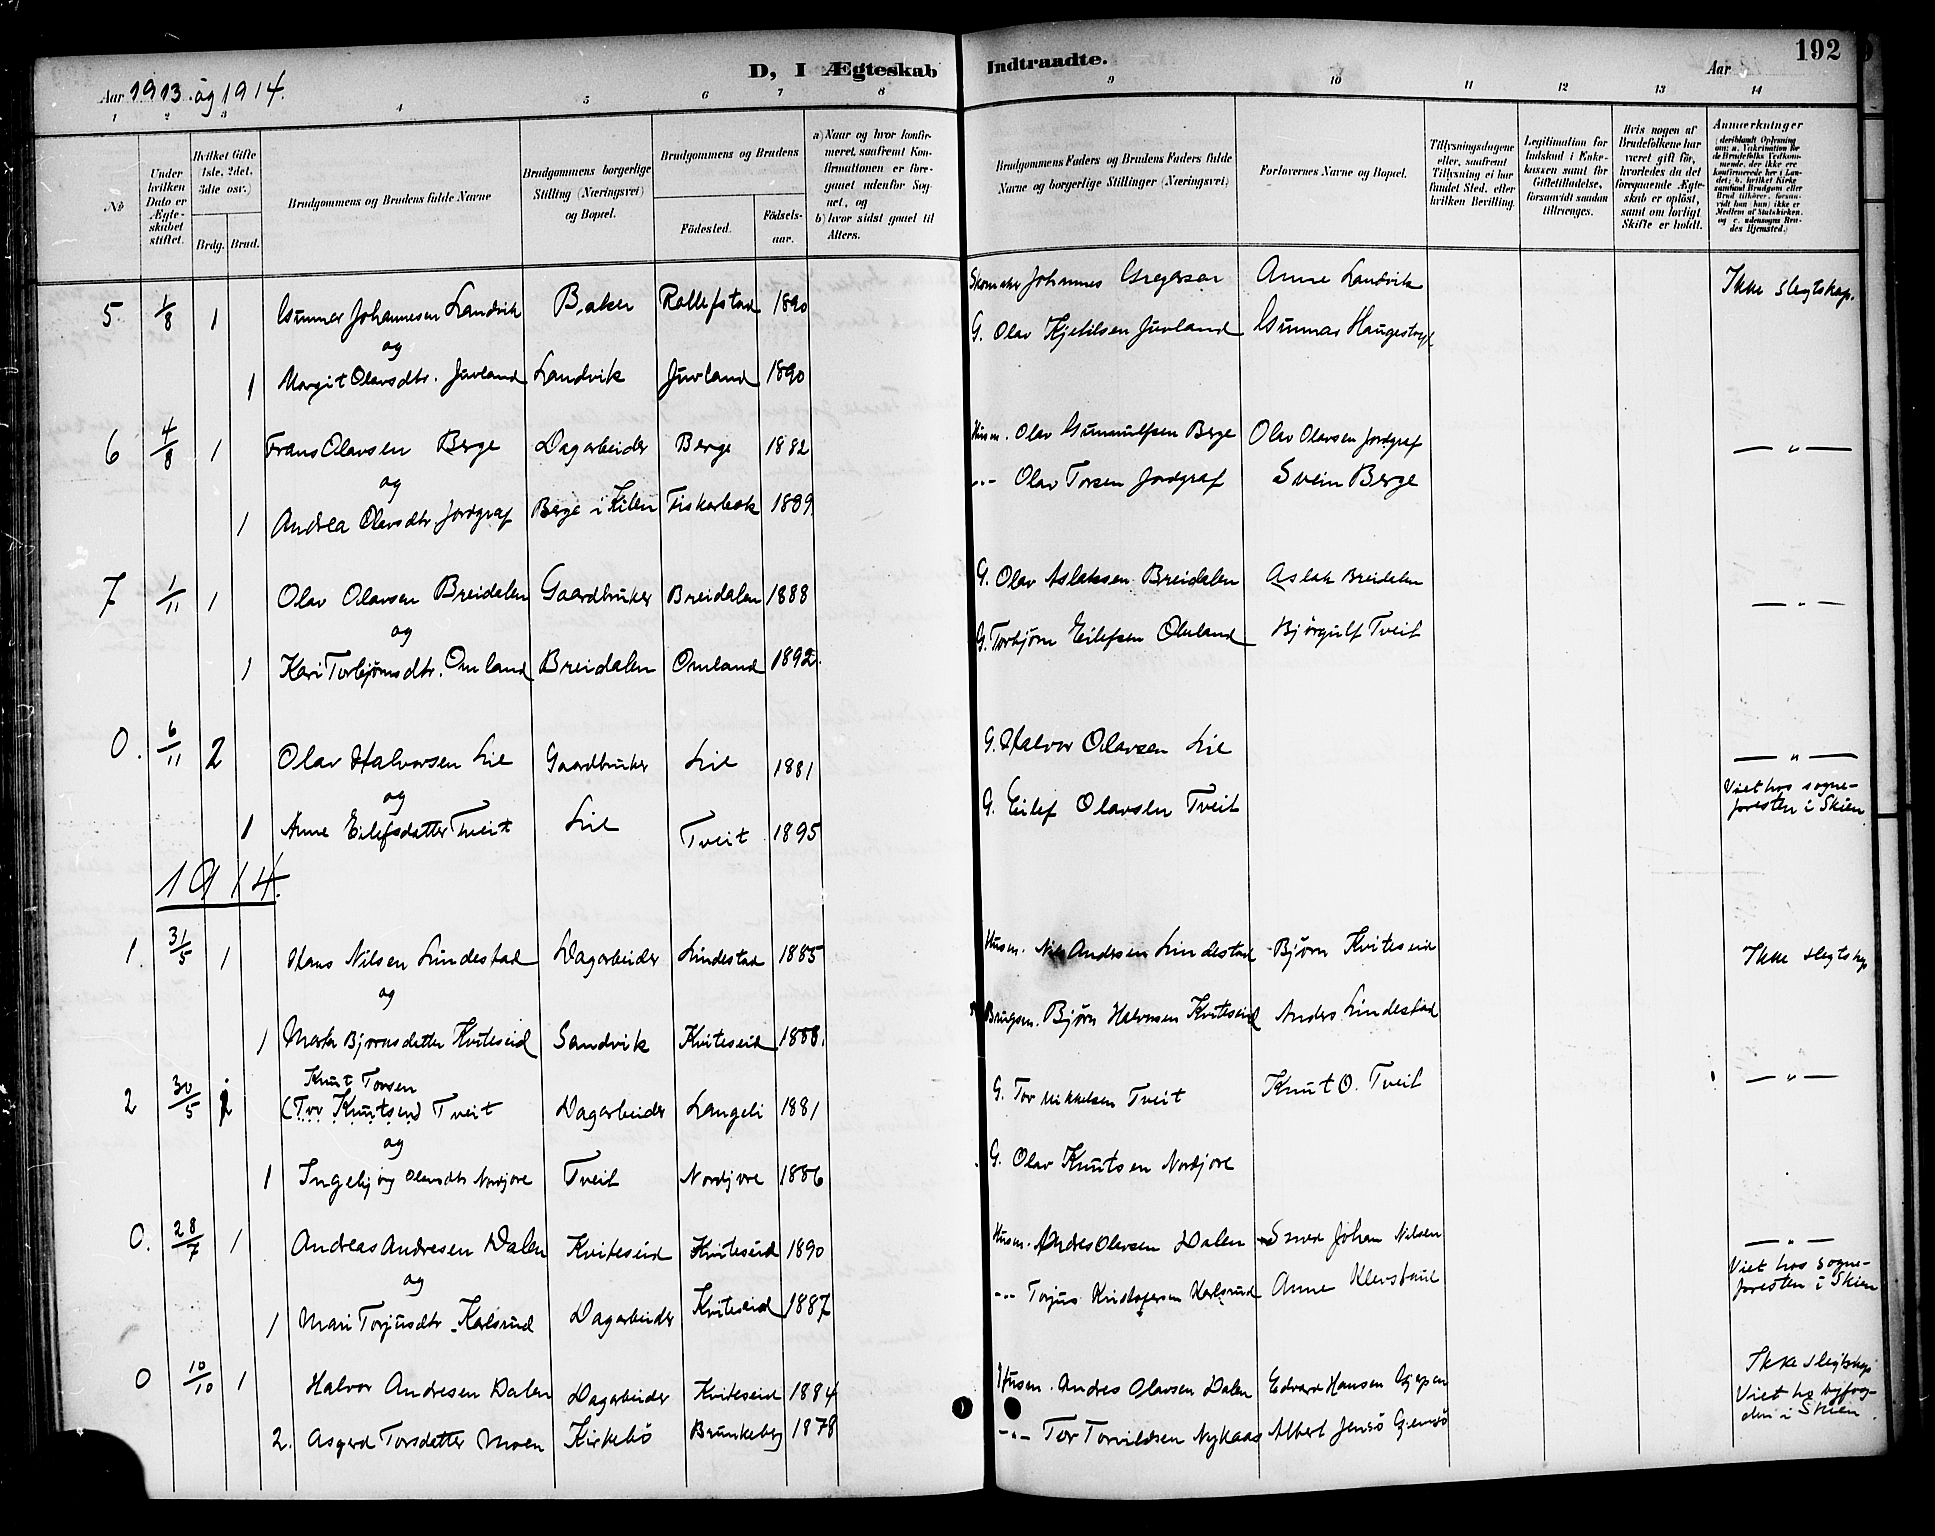 Aar 1913 og 1914.
D, I Ægteskab Indtraadte.
Aar
192
1 2 3 4 5 6 7 8 9 10 11 12 13 14
No
Under hvilken Dato er Ægteskabet stiftet.
Hvilket Gifte (1ste, 2det, 3die osv.)
Brdg. Brud.
Brudgommens og Brudens fulde Navne
Brudgommens borgerlige Stilling (Næringsvei) og Bopæl.
Brudgommens og Brudens
Födested.
Födselsaar.
a) Naar og hvor konfirmeret, saafremt Konfirmationen er foregaaet udenfor Sognet, og
b) hvor sidst gaaet til Alters.
Brudgommens Faders og Brudens Faders fulde Navne og borgerlige Stillinger (Næringsvei)
Forlovernes Navne og Bopæl.
Tillysningsdagene eller, saafremt Tillysning ei har fundet Sted, efter hvilken Bevilling.
Legitimation for Indskud i Enkekassen samt for Giftetilladelse, forsaavidt saadan tiltrænges.
Hvis nogen af Brudefolkene har været gift för, hvorledes da det foregaaende Ægteskab er oplöst, samt om lovligt Skifte er holdt.
Anmærkninger
5 1/8 1 Gunnar Johannesen Landvik Baker Rollefstad 1890 Skomaker Johannes Gregersen Anne Landvik Ikke slegtskap.
og
1 Margit Olavsdtr. Juvland Landvik Juvland 1890 G. Olav Kjetilsen Juvland Gunnar Haugestoyl
6 4/8 1 Frans Olavsen Berge Dagarbeider Berge 1882 Husm. Olav Gunnulfsen Berge Olav Olavsen Jordgraf — " —
og
1 Andrea Olavsdtr Jordgraf Berge i Kilen Fiskarbek 1889 -"- Olav Torsen Jordgraf Svein Berge
7 1/11 1 Olav Olavsen Breidalen Gaardbruker Breidalen 1888 G. Olav Aslaksen Breidalen Aslak Breidalen — " —
og
1 Kari Torbjørnsdtr. Omland Breidalen Omland 1892. G. Torbjørn Eilefsen Omland Bjørgulf Tveit
0. 6/11 2 Olav Halvorsen Lie Gaardbruker Lie 1881 G. Halvor Olavsen Lie — " —
og
1 Anne Eilefsdatter Tveit Lie Tveit 1895 G. Eilef Olavsen Tveit Viet hos sogne-
presten i Skien
1914.
1. 31/5 1 Hans Nilsen Lindestad Dagarbeider Lindestad 1885 Husm. Nils Andersen Lindestad Bjørn Kviteseid Ikke slegtskp
og
1 Marta Bjørnsdatter Kviteseid Sandvik Kviteseid 1888. Brugsm. Bjørn Halvorsen Kviteseid Anders Lindestad
Knut Torsen
2 30/5 2 (Tor Knutsen) Tveit Dagarbeider Langeli 1881 G. Tor Mikkelsen Tveit Knut O. Tveit — " —
og
1 Ingebjørg Olavsdtr Nordjore Tveit Nordjore 1886 G. Olav Knutsen Nordjore
0. 28/7 1 Andreas Andresen Dalen Kviteseid Kviteseid 1890 Husm. Andres Olavsen Dalen Johan Nilsen — " —
og
1 Mari Torjusdtr. Karlsrud Dagarbeider Kviteseid 1887 -"- Torjus Kristofersen Karlsrud Anne Klevstaul Viet hos sogne-
presten i Skien
0 10/10 1 Halvor Andresen Dalen Dagarbeider Kviteseid 1884 Husm. Andres Olavsen Dalen Edvard Hansen Ikke slegtskp
2. Asgerd Torsdatter Moen Kirkebö Brunkeberg 1878 -"- Tor Torvildsen Nykaas Albert Jensö Viet hos byfog-
den i Skien